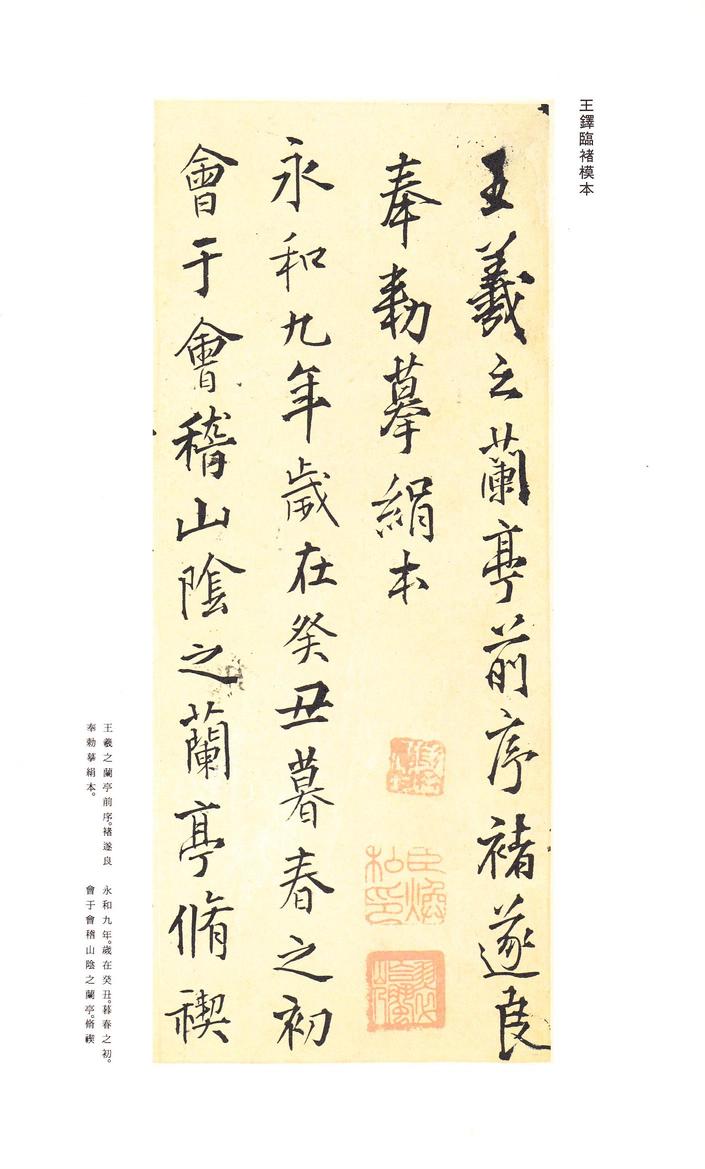 王鐸臨褚模本
王羲之蘭亭前序褚遂良
奉勑摹絹本
永和九年歲在癸丑暮春之初
會于會稽山陰之蘭亭脩禊
王羲之蘭亭前序。褚遂良
奉勅摹絹本。
永和九年。歲在癸丑。暮春之初。
會于會稽山陰之蘭亭。脩禊